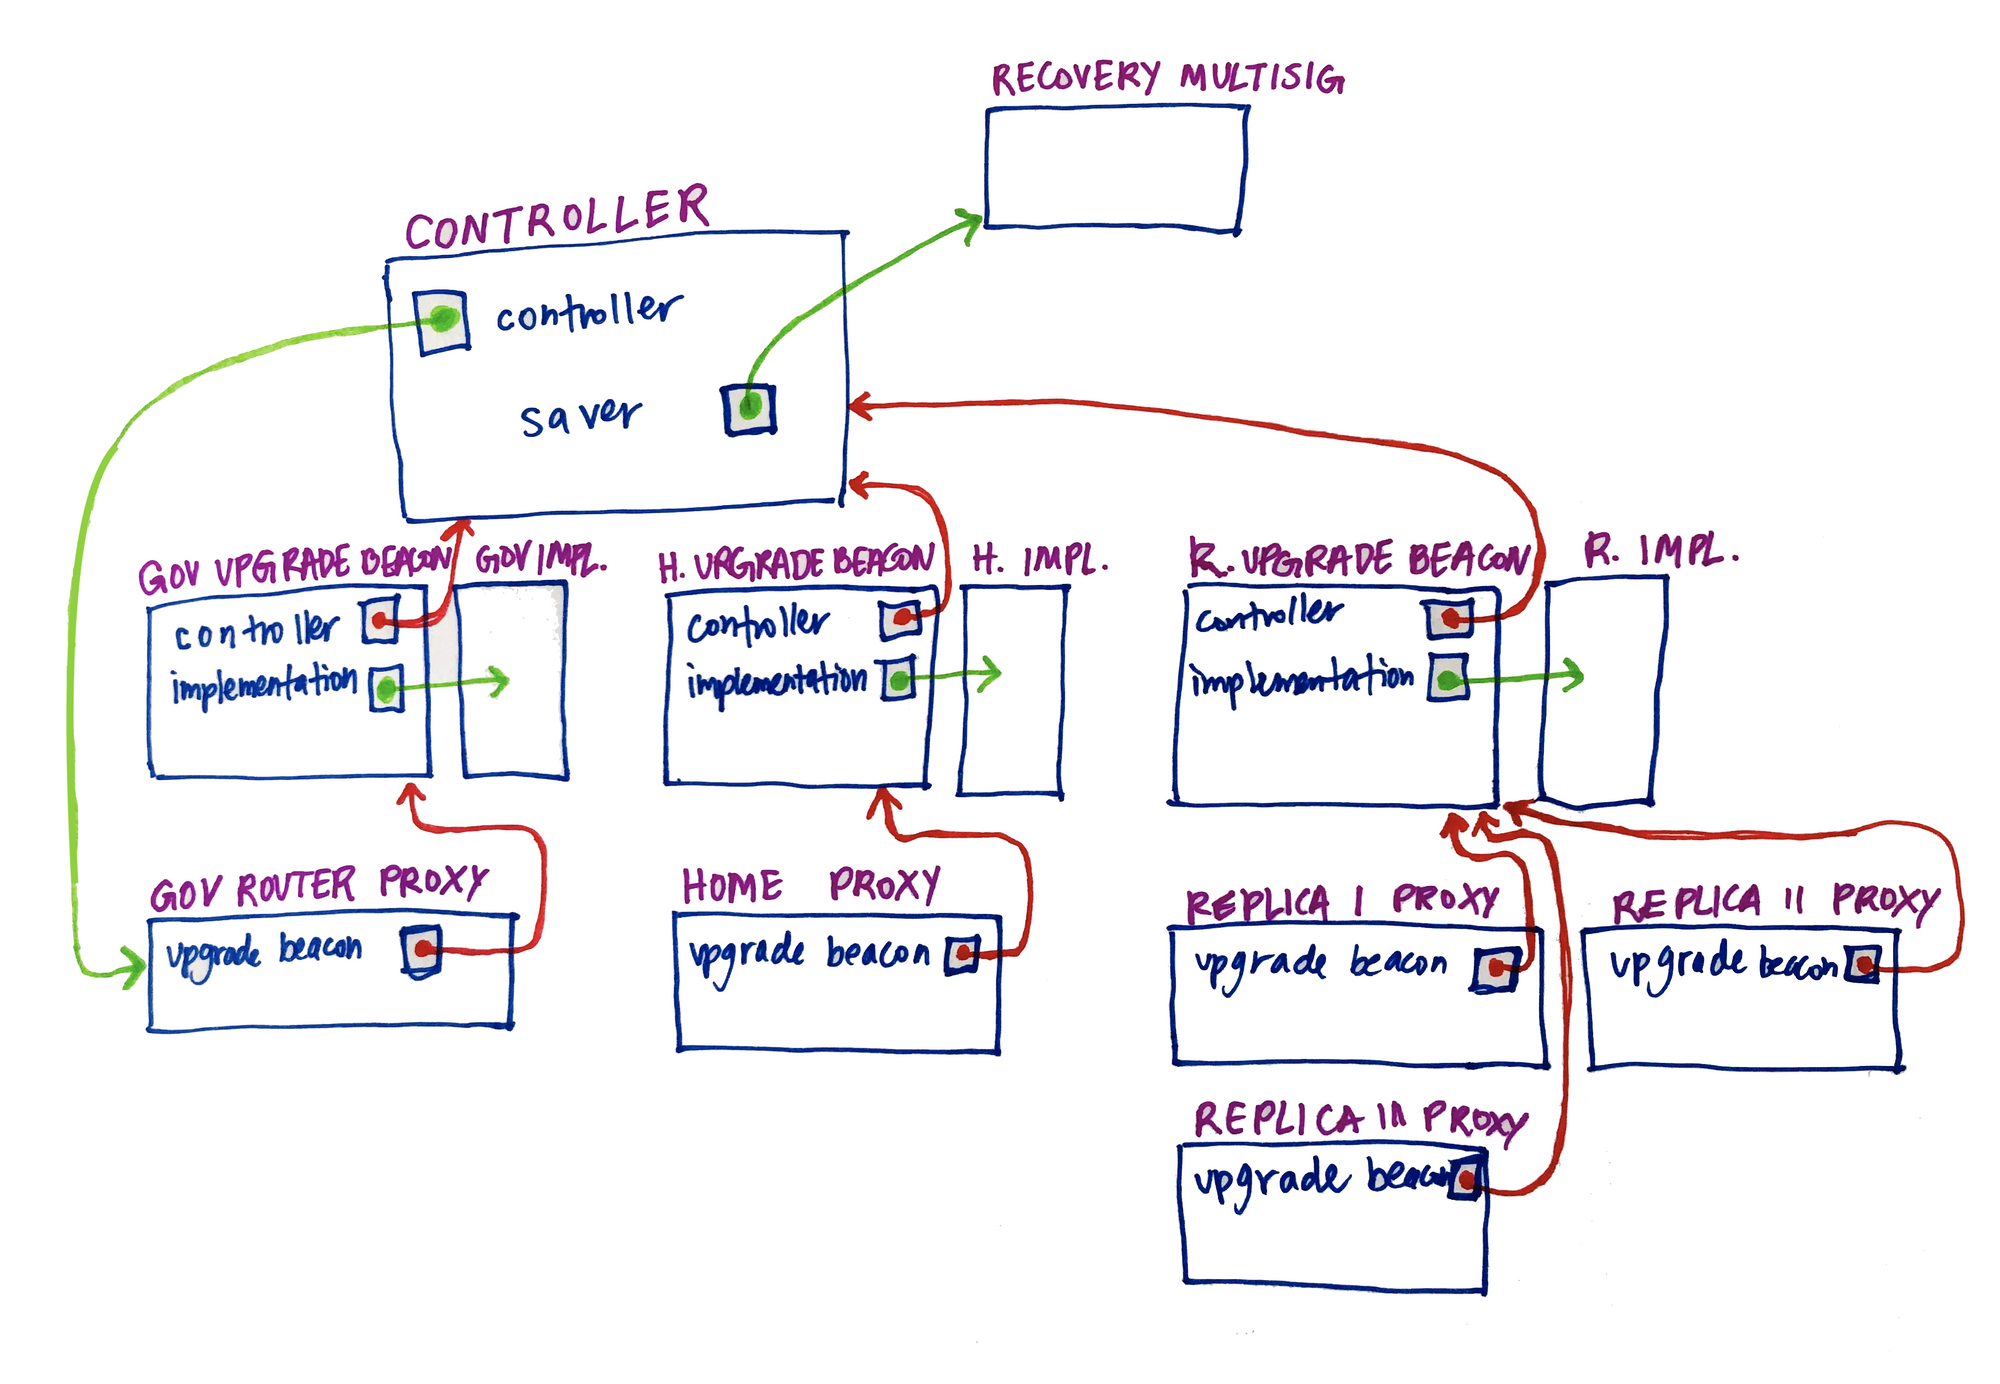 RECOVERY MULTISIG
CONTROLLER
controller
saver
GOV UPGRADE BEACON
GOV IMPL.
H. UPGRADE BEACON
H. IMPL.
R. UPGRADE BEACON
R. IMPL.
controller
implementation
controller
implementation
controller
implementation
GOV ROUTER PROXY
upgrade beacon
HOME PROXY
upgrade beacon
REPLICA I PROXY
upgrade beacon
REPLICA II PROXY
upgrade beacon
REPLICA III PROXY
upgrade beacon